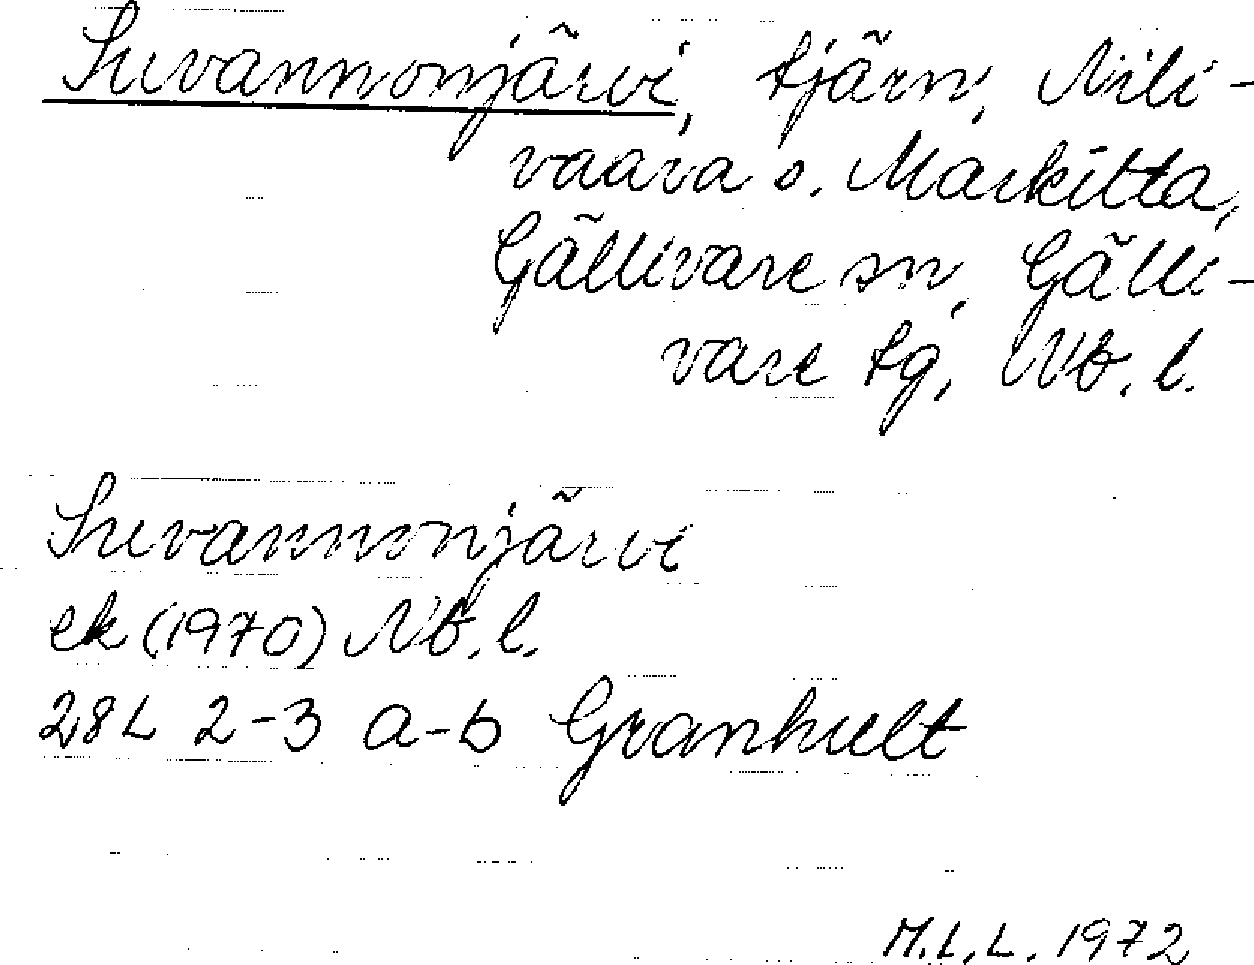 Suvannonjärvi, tjärn, Nili-
vaara o. Markitta,
Gällivare sn, Gälli-
vare tg, Nb. l.
Suvannonjärvi
ek (1970) Nb. l.
28L 2-3 a-b Granhult
M.L.L. 1972